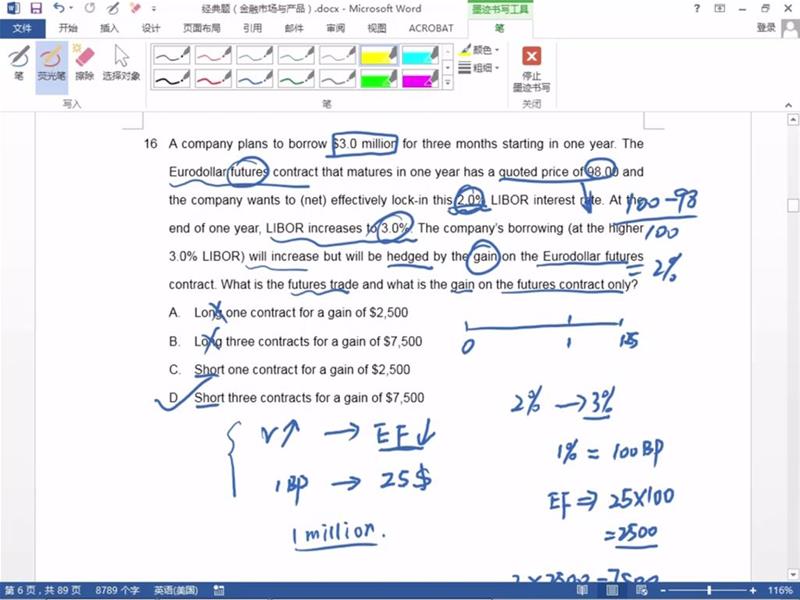 经典题（金融市场与产品）.docx - Microsoft Word
墨迹书写工具
文件 开始 插入 设计 页面布局 引用 邮件 审阅 视图 ACROBAT 笔 登录
笔 荧光笔 擦除 选择对象
颜色
粗细
停止
墨迹书写
写入 笔 关闭
16 A company plans to borrow $3.0 million for three months starting in one year. The
Eurodollar futures contract that matures in one year has a quoted price of 98.00 and
the company wants to (net) effectively lock-in this 2.0% LIBOR interest rate. At the
end of one year, LIBOR increases to 3.0%. The company's borrowing (at the higher
3.0% LIBOR) will increase but will be hedged by the gain on the Eurodollar futures
contract. What is the futures trade and what is the gain on the futures contract only?
100-98
100
= 2%
A. Long one contract for a gain of $2,500
B. Long three contracts for a gain of $7,500
C. Short one contract for a gain of $2,500
D. Short three contracts for a gain of $7,500
0 1 1.25
r↑ → EF↓
1BP → 25$
1 million.
2% → 3%
1% = 100BP
EF ⇒ 25×100
= 2500
3×2500=7500
第 6 页，共 89 页 8789 个字 英语(美国) 116%